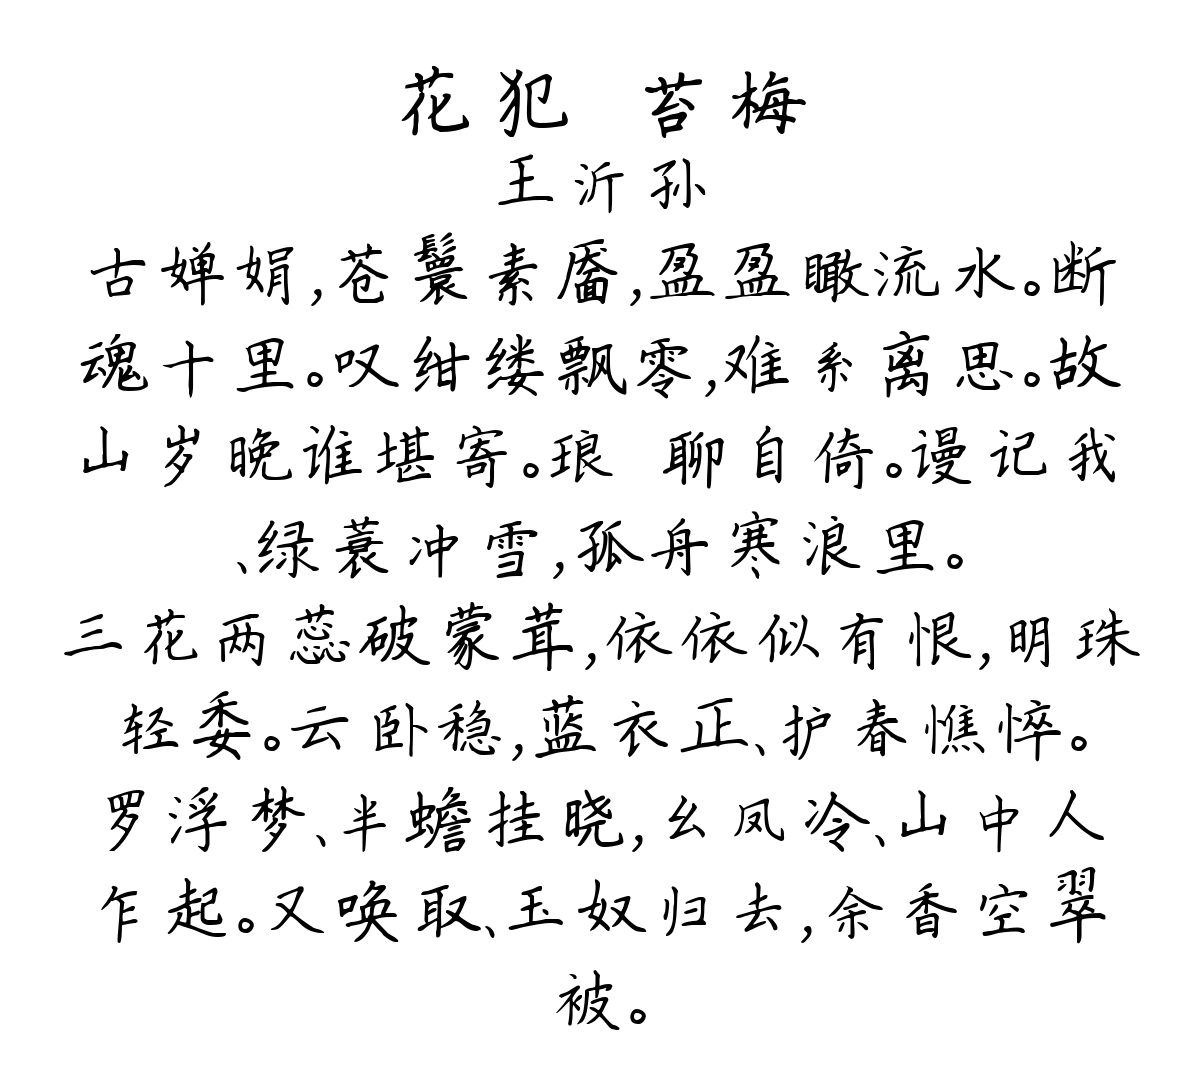 花犯 苔梅
王沂孙
古婵娟,苍鬟素靥,盈盈瞰流水。断
魂十里。叹绀缕飘零,难系离思。故
山岁晚谁堪寄。琅 聊自倚。谩记我
、绿蓑冲雪,孤舟寒浪里。
三花两蕊破蒙茸,依依似有恨,明珠
轻委。云卧稳,蓝衣正、护春憔悴。
罗浮梦、半蟾挂晓,幺凤冷、山中人
乍起。又唤取、玉奴归去,余香空翠
被。